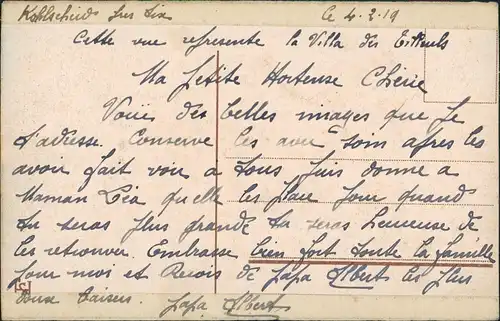 Kohlscheid le 4.2.19
Cette vue represente la Villa des Tilleuls
Ma Petite Hortense Chérie
Voici des belles images que Je
t'adresse. Conserve les avec soin apres les
avoir fait voir a tous puis donne a
Maman Léa qu'elle les place pour quand
tu seras plus grande tu seras heureuse de
les retrouver. Embrasse bien fort toute la famille
pour moi et Recois de papa Albert les plus
doux baisers. papa Albert